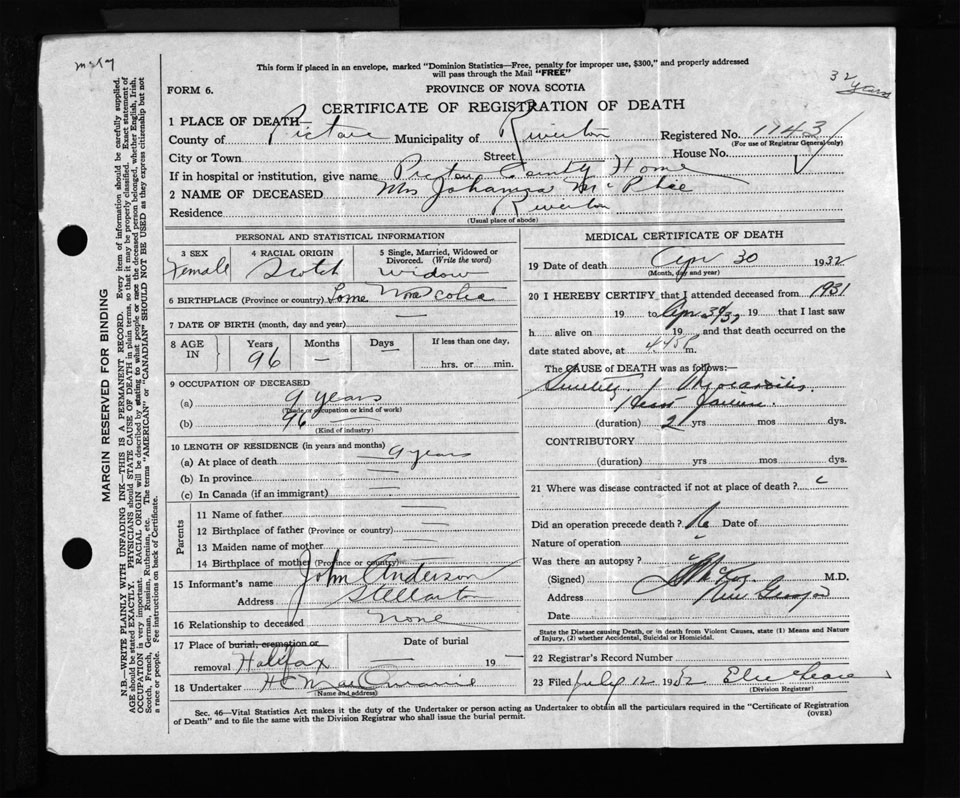 This form if placed in an envelope, marked "Dominion Statistics—Free, penalty for improper use, $300," and properly addressed
will pass through the Mail "FREE"
32 years
FORM 6.
PROVINCE OF NOVA SCOTIA
CERTIFICATE OF REGISTRATION OF DEATH
1 PLACE OF DEATH
County of Pictou Municipality of Riverton Registered No. 1143
(For use of Registrar General only)
City or Town Street House No.
If in hospital or institution, give name Pictou County Home
2 NAME OF DECEASED Mrs Johanna McPhee
Residence Riverton
(Usual place of abode)
PERSONAL AND STATISTICAL INFORMATION
3 SEX Female
4 RACIAL ORIGIN Scotch
5 Single, Married, Widowed or Divorced. (Write the word) widow
6 BIRTHPLACE (Province or country) Lorne Nova Scotia
7 DATE OF BIRTH (month, day and year) —
8 AGE IN Years 96 Months — Days — If less than one day, hrs. or min.
9 OCCUPATION OF DECEASED
(a) 9 years
(Trade or occupation or kind of work)
(b) 96 —
(Kind of industry)
10 LENGTH OF RESIDENCE (in years and months)
(a) At place of death 9 years
(b) In province —
(c) In Canada (if an immigrant) —
Parents
11 Name of father —
12 Birthplace of father (Province or country) —
13 Maiden name of mother —
14 Birthplace of mother (Province or country) —
15 Informant's name John Anderson
Address Stellarton
16 Relationship to deceased none
17 Place of burial, cremation or removal Halifax
Date of burial — 19 —
18 Undertaker H C
(Name and address)
MEDICAL CERTIFICATE OF DEATH
19 Date of death Apr 30 1932
(Month, day and year)
20 I HEREBY CERTIFY that I attended deceased from 1931
19 to Apr 30/32 19 that I last saw
h alive on 19 and that death occurred on
date stated above, at m.
The CAUSE of DEATH was as follows:—
Senility, Myocarditis
Heart
(duration) 2 yrs mos dys.
CONTRIBUTORY
(duration) yrs mos dys.
21 Where was disease contracted if not at place of death?
Did an operation precede death? No Date of
Nature of operation
Was there an autopsy?
(Signed) M.D.
Address New Glasgow
Date
State the Disease causing Death, or in death from Violent Causes, state (1) Means and Nature
of Injury, (2) whether Accidental, Suicidal or Homicidal.
22 Registrar's Record Number
23 Filed July 12 1932
(Division Registrar)
Sec. 46—Vital Statistics Act makes it the duty of the Undertaker or person acting as Undertaker to obtain all the particulars required in the "Certificate of Registration
of Death" and to file the same with the Division Registrar who shall issue the burial permit.
(OVER)
MARGIN RESERVED FOR BINDING
N.B.—WRITE PLAINLY WITH UNFADING INK—THIS IS A PERMANENT RECORD. Every item of information should be carefully supplied.
AGE should be stated EXACTLY. PHYSICIANS should STATE CAUSE OF DEATH in plain terms, so that it may be properly classified. Exact statement of
OCCUPATION is very important. RACIAL ORIGIN will be described by stating to what people or race the deceased person belonged, whether English, Irish,
Scotch, French, German, Russian, Ruthenian, etc. The terms "AMERICAN" or "CANADIAN" SHOULD NOT BE USED as they express citizenship but not
a race or people. See instructions on back of Certificate.